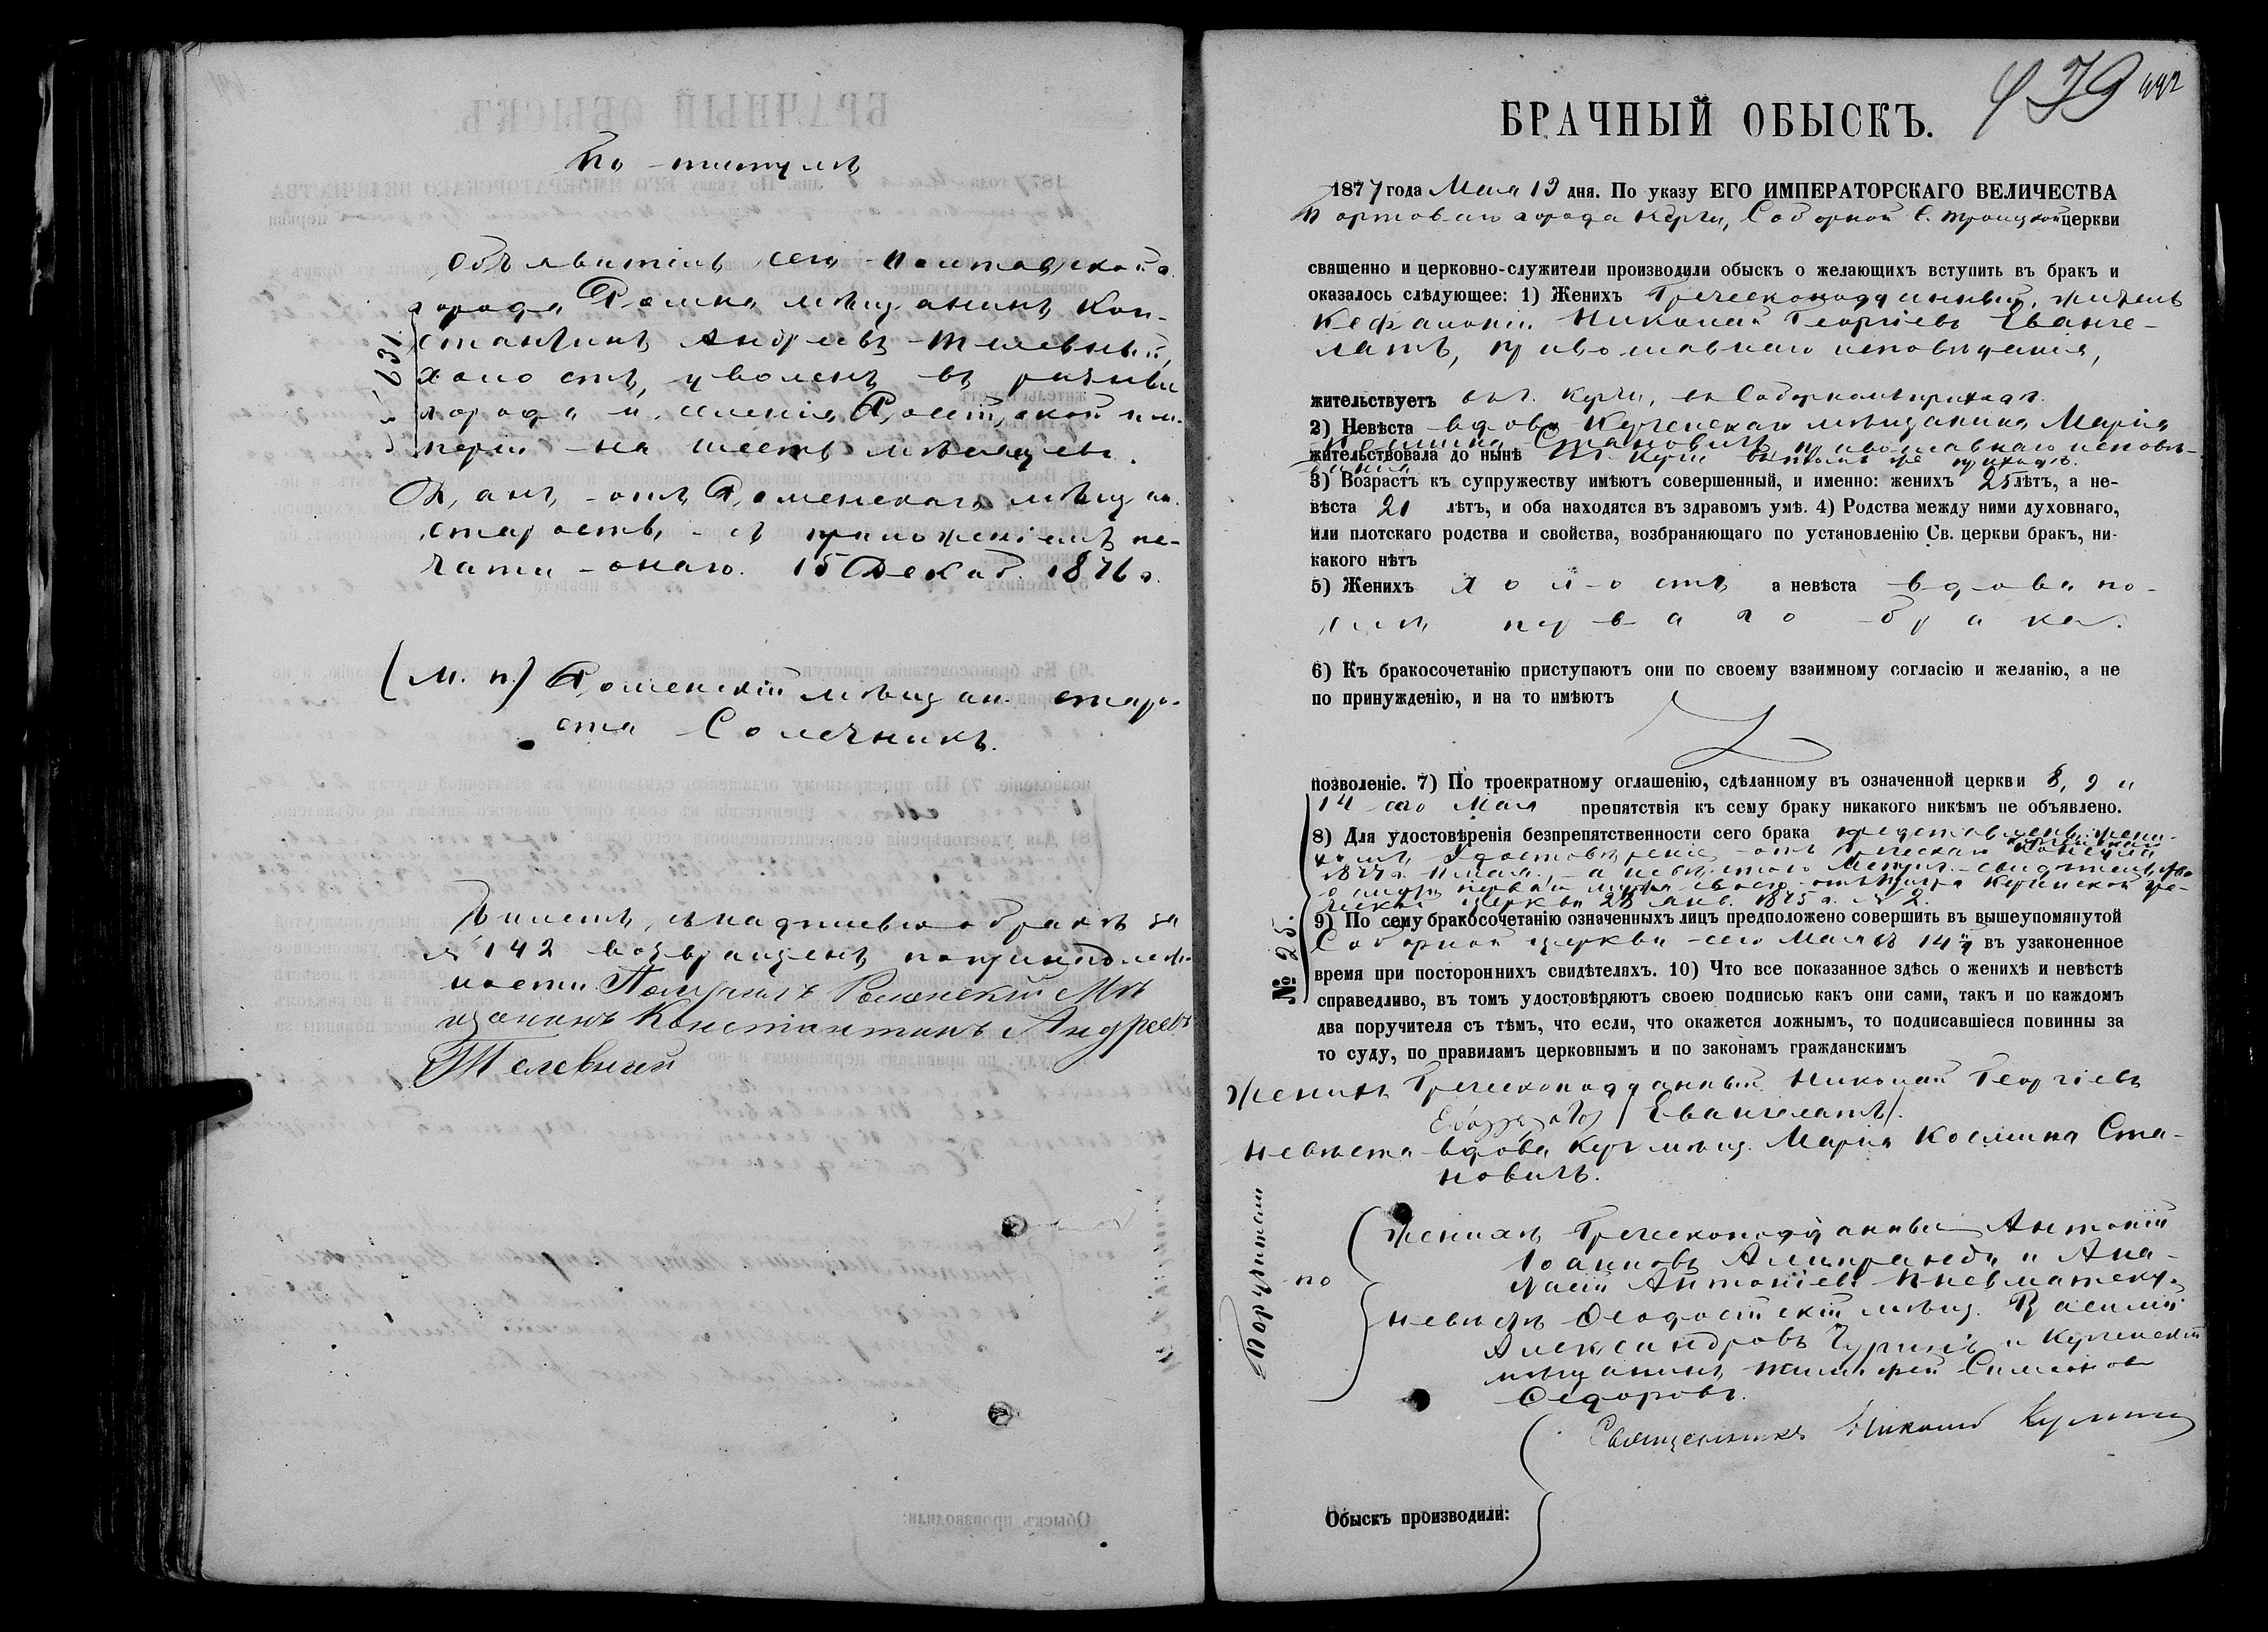 По титулѣ
Объявитель сего Полтавской г.
города Ромна мѣщанинъ Кон-
стантинъ Андреевъ Телевный,
холостъ, уволенъ въ разные
города и селенія Россійской им-
періи на шесть мѣсяцевъ.
Данъ отъ Роменскаго мѣщан.
старосты, съ приложеніемъ пе-
чати онаго. 15 Декаб. 1876 г.
№ 631.
(М. п.) Роменскій мѣщан. старо-
ста Солечникъ.
Билетъ, съ надписью о бракѣ за
№ 142 возвращенъ по принадлеж-
ности Получилъ Роменский Мѣ
щанинъ Константинъ Андреевъ
Телевный
479 442
БРАЧНЫЙ ОБЫСКЪ.
1877 года Мая 13 дня. По указу ЕГО ИМПЕРАТОРСКАГО ВЕЛИЧЕСТВА
Портоваго города Керчи, Соборной С. Троицкой церкви
священно и церковно-служители производили обыскъ о желающихъ вступить въ бракъ и
оказалось слѣдующее: 1) Женихъ Греческоподданный, житель
Кефалоніи Николай Георгіевъ Еванге-
латъ, православнаго исповѣданія,
жительствуетъ въ г. Керчи, въ Соборномъ приходѣ.
2) Невѣста вдова Керченскаго мѣщанина Марія
Космина Становичъ, православнаго исповѣ-
данія
жительствовала до нынѣ въ г. Керчи въ томъ же приходѣ.
3) Возрастъ къ супружеству имѣютъ совершенный, и именно: женихъ 25 лѣтъ, а не-
вѣста 21 лѣтъ, и оба находятся въ здравомъ умѣ. 4) Родства между ними духовнаго,
или плотскаго родства и свойства, возбраняющаго по установленію Св. церкви бракъ, ни-
какого нѣтъ
5) Женихъ холостъ а невѣста вдова по-
слѣ перваго брака.
6) Къ бракосочетанію приступаютъ они по своему взаимному согласію и желанію, а не
по принужденію, и на то имѣютъ
позволеніе. 7) По троекратному оглашенію, сдѣланному въ означенной церкви 8, 9 и
14 сего Мая препятствія къ сему браку никакого никѣмъ не объявлено.
8) Для удостовѣренія безпрепятственности сего брака представлены: жени-
хомъ, удостовѣреніе отъ Греческаго Консула
мая, а невѣстою Метрич. свидѣтельство
о смерти перваго мужа своего отъ причта Керченской Гре-
ческой церкви 28 янв. 1875 г. № 2.
№ 25.
9) По сему бракосочетанію означенныхъ лицъ предположено совершить въ вышеупомянутой
Соборной церкви сего Мая въ 14 й въ узаконенное
время при постороннихъ свидѣтеляхъ. 10) Что все показанное здѣсь о женихѣ и невѣстѣ
справедливо, въ томъ удостовѣряютъ своею подписью какъ они сами, такъ и по каждомъ
два поручителя съ тѣмъ, что если, что окажется ложнымъ, то подписавшіеся повинны за
то суду, по правиламъ церковнымъ и по законамъ гражданскимъ
Женихъ Греческоподданный Николай Георгіевъ
/Евангелатъ/.
Невѣста вдова Керч. мѣщ. Марія Космина Ста-
новичъ.
Поручители
по
женихѣ Греческоподданные Антоній
Іоанновъ Алипранди и Ана-
Антоніевъ Пневматеку.
невѣстѣ Ѳеодосійскій мѣщ. Василій
Александровъ и Керченскій
мѣщанинъ Тимофей Симеонов
Ѳедоровъ.
Священникъ Николай
Обыскъ производили: